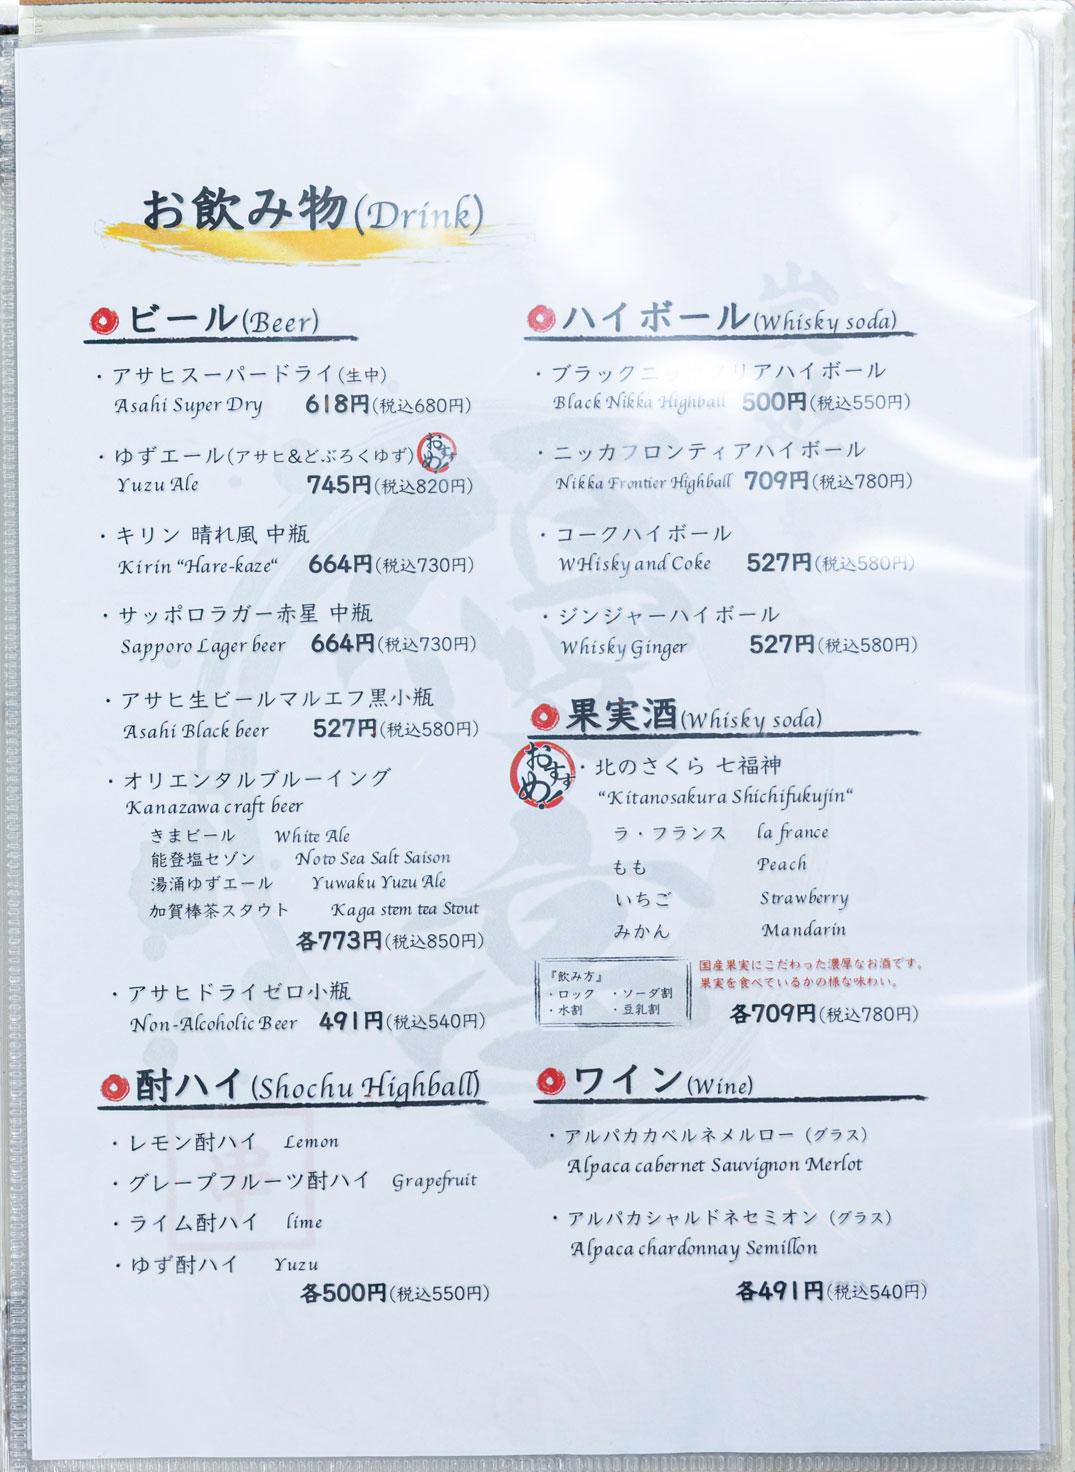 お飲み物(Drink)
ビール(Beer)
・アサヒスーパードライ(生中)
Asahi Super Dry 618円(税込680円)
・ゆずエール(アサヒ&どぶろくゆず) おすすめ!
Yuzu Ale 745円(税込820円)
・キリン 晴れ風 中瓶
Kirin "Hare-kaze" 664円(税込730円)
・サッポロラガー赤星 中瓶
Sapporo Lager beer 664円(税込730円)
・アサヒ生ビールマルエフ黒小瓶
Asahi Black beer 527円(税込580円)
・オリエンタルブルーイング
Kanazawa craft beer
きまビール White Ale
能登塩セゾン Noto Sea Salt Saison
湯涌ゆずエール Yuwaku Yuzu Ale
加賀棒茶スタウト Kaga stem tea Stout
各773円(税込850円)
・アサヒドライゼロ小瓶
Non-Alcoholic Beer 491円(税込540円)
酎ハイ(Shochu Highball)
・レモン酎ハイ Lemon
・グレープフルーツ酎ハイ Grapefruit
・ライム酎ハイ lime
・ゆず酎ハイ Yuzu
各500円(税込550円)
ハイボール(Whisky soda)
・ブラックニッカクリアハイボール
Black Nikka Highball 500円(税込550円)
・ニッカフロンティアハイボール
Nikka Frontier Highball 709円(税込780円)
・コークハイボール
WHisky and Coke 527円(税込580円)
・ジンジャーハイボール
Whisky Ginger 527円(税込580円)
果実酒(Whisky soda)
おすすめ! ・北のさくら 七福神
"Kitanosakura Shichifukujin"
ラ・フランス la france
もも Peach
いちご Strawberry
みかん Mandarin
『飲み方』
・ロック ・ソーダ割
・水割 ・豆乳割
国産果実にこだわった濃厚なお酒です。
果実を食べているかの様な味わい。
各709円(税込780円)
ワイン(Wine)
・アルパカカベルネメルロー（グラス）
Alpaca cabernet Sauvignon Merlot
・アルパカシャルドネセミオン（グラス）
Alpaca chardonnay Semillon
各491円(税込540円)